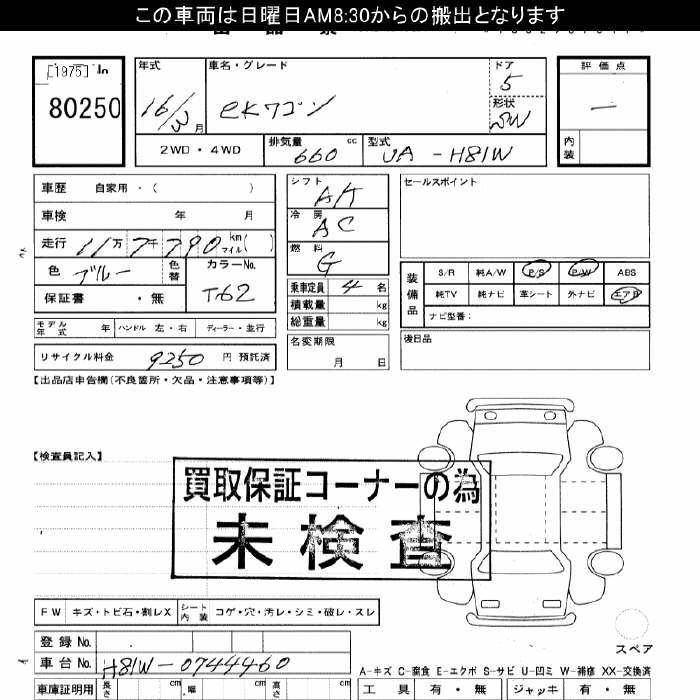 この車両は日曜日AM8:30からの搬出となります
[1975] In
80250
年式 車名・グレード ドア 評価点
16/3月 eKワゴン 5
形状 SW
2WD・4WD 排気量 660 cc 型式 UA-H81W 内装
車歴 自家用・( )
車検 年 月
走行 11万7千790 km マイル( )
色 ブルー 色替 カラーNo. T62
保証書 ・無
モデル年式 年 ハンドル 左・右 ディーラー・並行
リサイクル料金 9250 円 預託済
シフト AT
冷房 AC
燃料 G
乗車定員 4 名
積載量 kg
総重量 kg
名変期限
月 日
セールスポイント
装備品 S/R 純A/W P/S P/W ABS
純TV 純ナビ 革シート 外ナビ エアB
ナビ型番:
後日品
【出品店申告欄(不良箇所・欠品・注意事項等)】
【検査員記入】
買取保証コーナーの為
未検査
FW キズ・トビ石・割レX シート内装 コゲ・穴・汚レ・シミ・破レ・スレ
スペア
登録No.
車台No. H81W-0744460
A-キズ C-腐食 E-エクボ S-サビ U-凹ミ W-補修 XX-交換済
車庫証明用 長さ cm 幅 cm 高さ cm 工具 有・無 ジャッキ 有・無